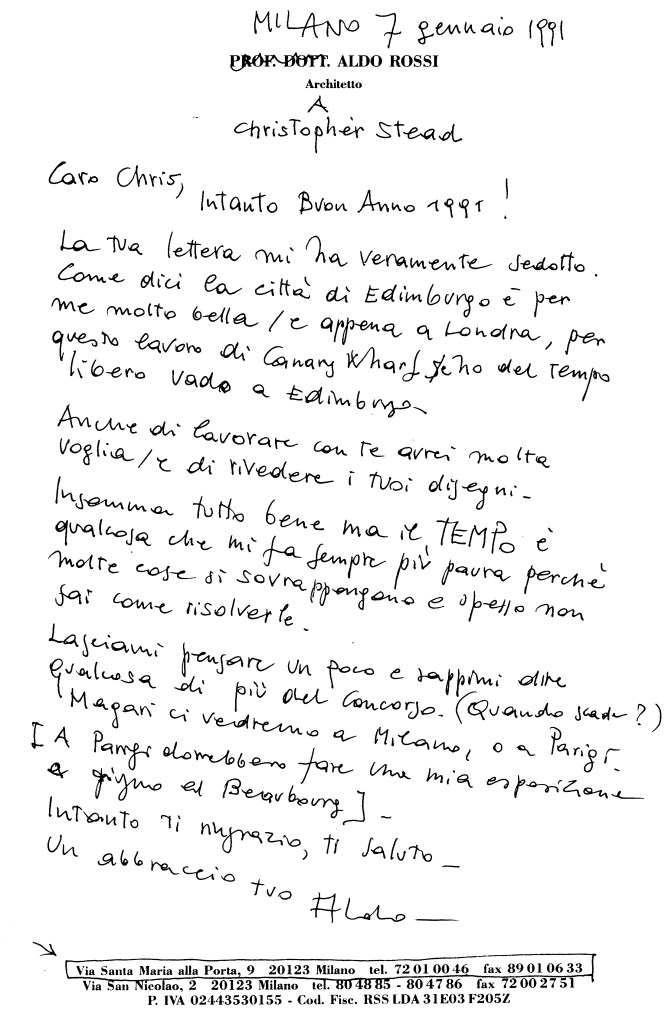 MILANO 7 gennaio 1991
PROF. DOTT. ALDO ROSSI
Architetto
A
christopher stead
Caro Chris,
Intanto Buon Anno 1991 !
La tua lettera mi ha veramente sedotto.
Come dici la città di Edimburgo è per
me molto bella / e appena a Londra, per
questo lavoro di Canary Wharf, se ho del tempo
libero vado a Edimburgo -
Anche di lavorare con te avrei molta
voglia / e di rivedere i tuoi disegni -
Insomma tutto bene ma il TEMPO è
qualcosa che mi fa sempre più paura perchè
molte cose si sovrappongono e spesso non
sai come risolverle.
Lasciami pensare un poco e sappimi dire
qualcosa di più del concorso. (Quando scade ?)
Magari ci vedremo a Milano, o a Parigi -
[ A Parigi dovrebbero fare una mia esposizione
a giugno al Beaubourg ] -
Intanto ti ringrazio, ti saluto -
Un abbraccio tuo Aldo -
Via Santa Maria alla Porta, 9 20123 Milano tel. 72 01 00 46 fax 89 01 06 33
Via San Nicolao, 2 20123 Milano tel. 80 48 85 - 80 47 86 fax 72 00 27 51
P. IVA 02443530155 - Cod. Fisc. RSS LDA 31E03 F205Z